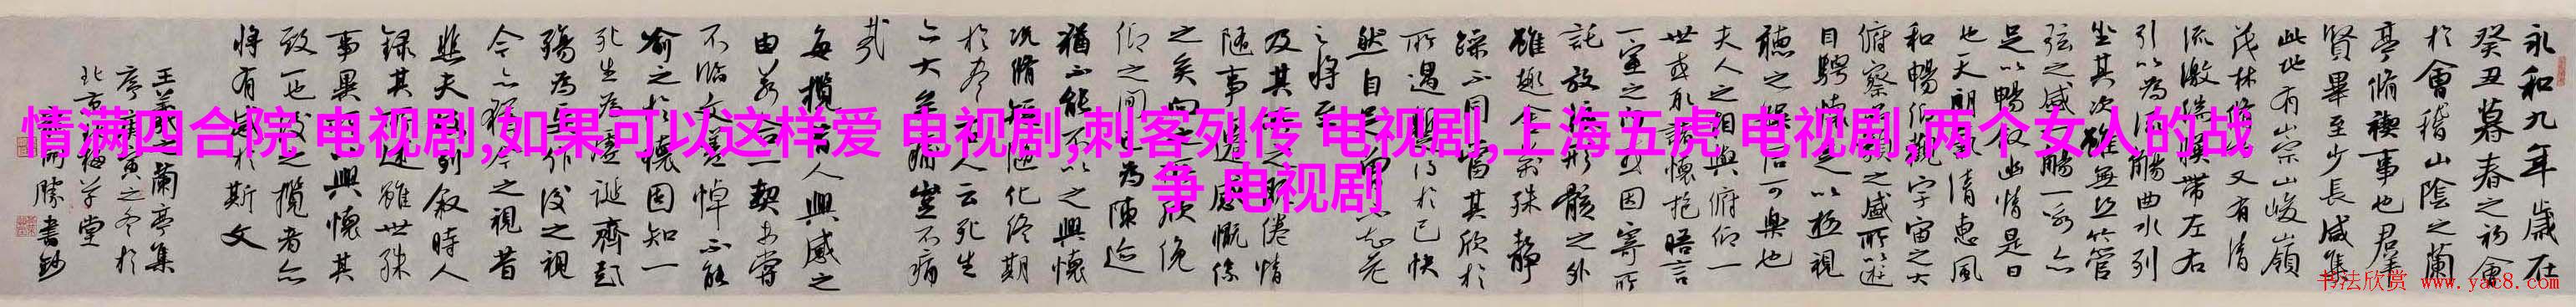 情满四合院 电视剧,如果可以这样爱 电视剧,刺客列传 电视剧,上海五虎 电视剧,两个女人的战
争 电视剧
永和九年歲在
癸丑暮春之初會
於會稽山陰之蘭
亭脩禊事也羣
賢畢至少長咸集
此地有崇山峻嶺
茂林脩竹又有清
流激湍暎帶左右
引以為流觴曲水列
坐其次雖無絲竹管
弦之盛一觴一詠亦
足以暢叙幽情是日
也天朗氣清惠風
和暢仰觀宇宙之大
俯察品類之盛所以遊
目騁懷足以極視
聽之娛信可樂也
夫人之相與俯仰一
世或取諸懷抱晤言
一室之內或因寄所
託放浪形骸之外
雖趣舍萬殊靜
躁不同當其欣於
所遇暫得於己快
然自足不知老
之將至
及其所之既惓情
隨事遷感慨係
之矣向之所欣俛
仰之間已為陳迹
猶不能不以之興懷
况脩短隨化終期
於盡古人云死生
亦大矣豈不痛
哉
每攬昔人興感之
由若合一契未嘗
不臨文嗟悼不能
喻之於懷固知一
死生為虛誕齊彭
殤為妄作後之視
今亦猶今之視昔
悲夫故列叙時人
錄其所述雖世殊
事異所以興懷其
致一也後之攬者亦
將有感於斯文
王羲之蘭亭集
序庚寅之冬於
北京草堂
勝書鈔
书法欣赏 www.yac8.com